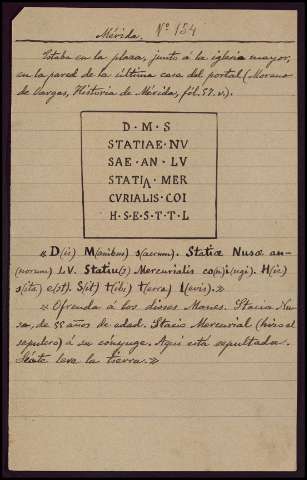 Mérida. Nº 154
Estaba en la plaza, junto á la iglesia mayor,
en la pared de la última casa del portal (Moreno
de Vargas, Historia de Mérida, fól. 57. v.).
D · M · S
STATIAE · NV
SAE · AN · LV
STATIA · MER
CVRIALIS · COI
H · S · E · S · T · T · L
« D(is) M(anibus) s(acrum). Statiæ Nusæ an-
(norum) LV. Statiu(s) Mercurialis co(n)i(ugi). H(ic)
s(ita) e(st). S(it) t(ibi) t(erra) l(evis). »
« Ofrenda á los dioses Manes. Stacia Nu
sa, de 55 años de edad. Stacio Mercurial (hizo el
sepulcro) á su cónyuge. Aquí está sepultada.
Séate leve la tierra. »